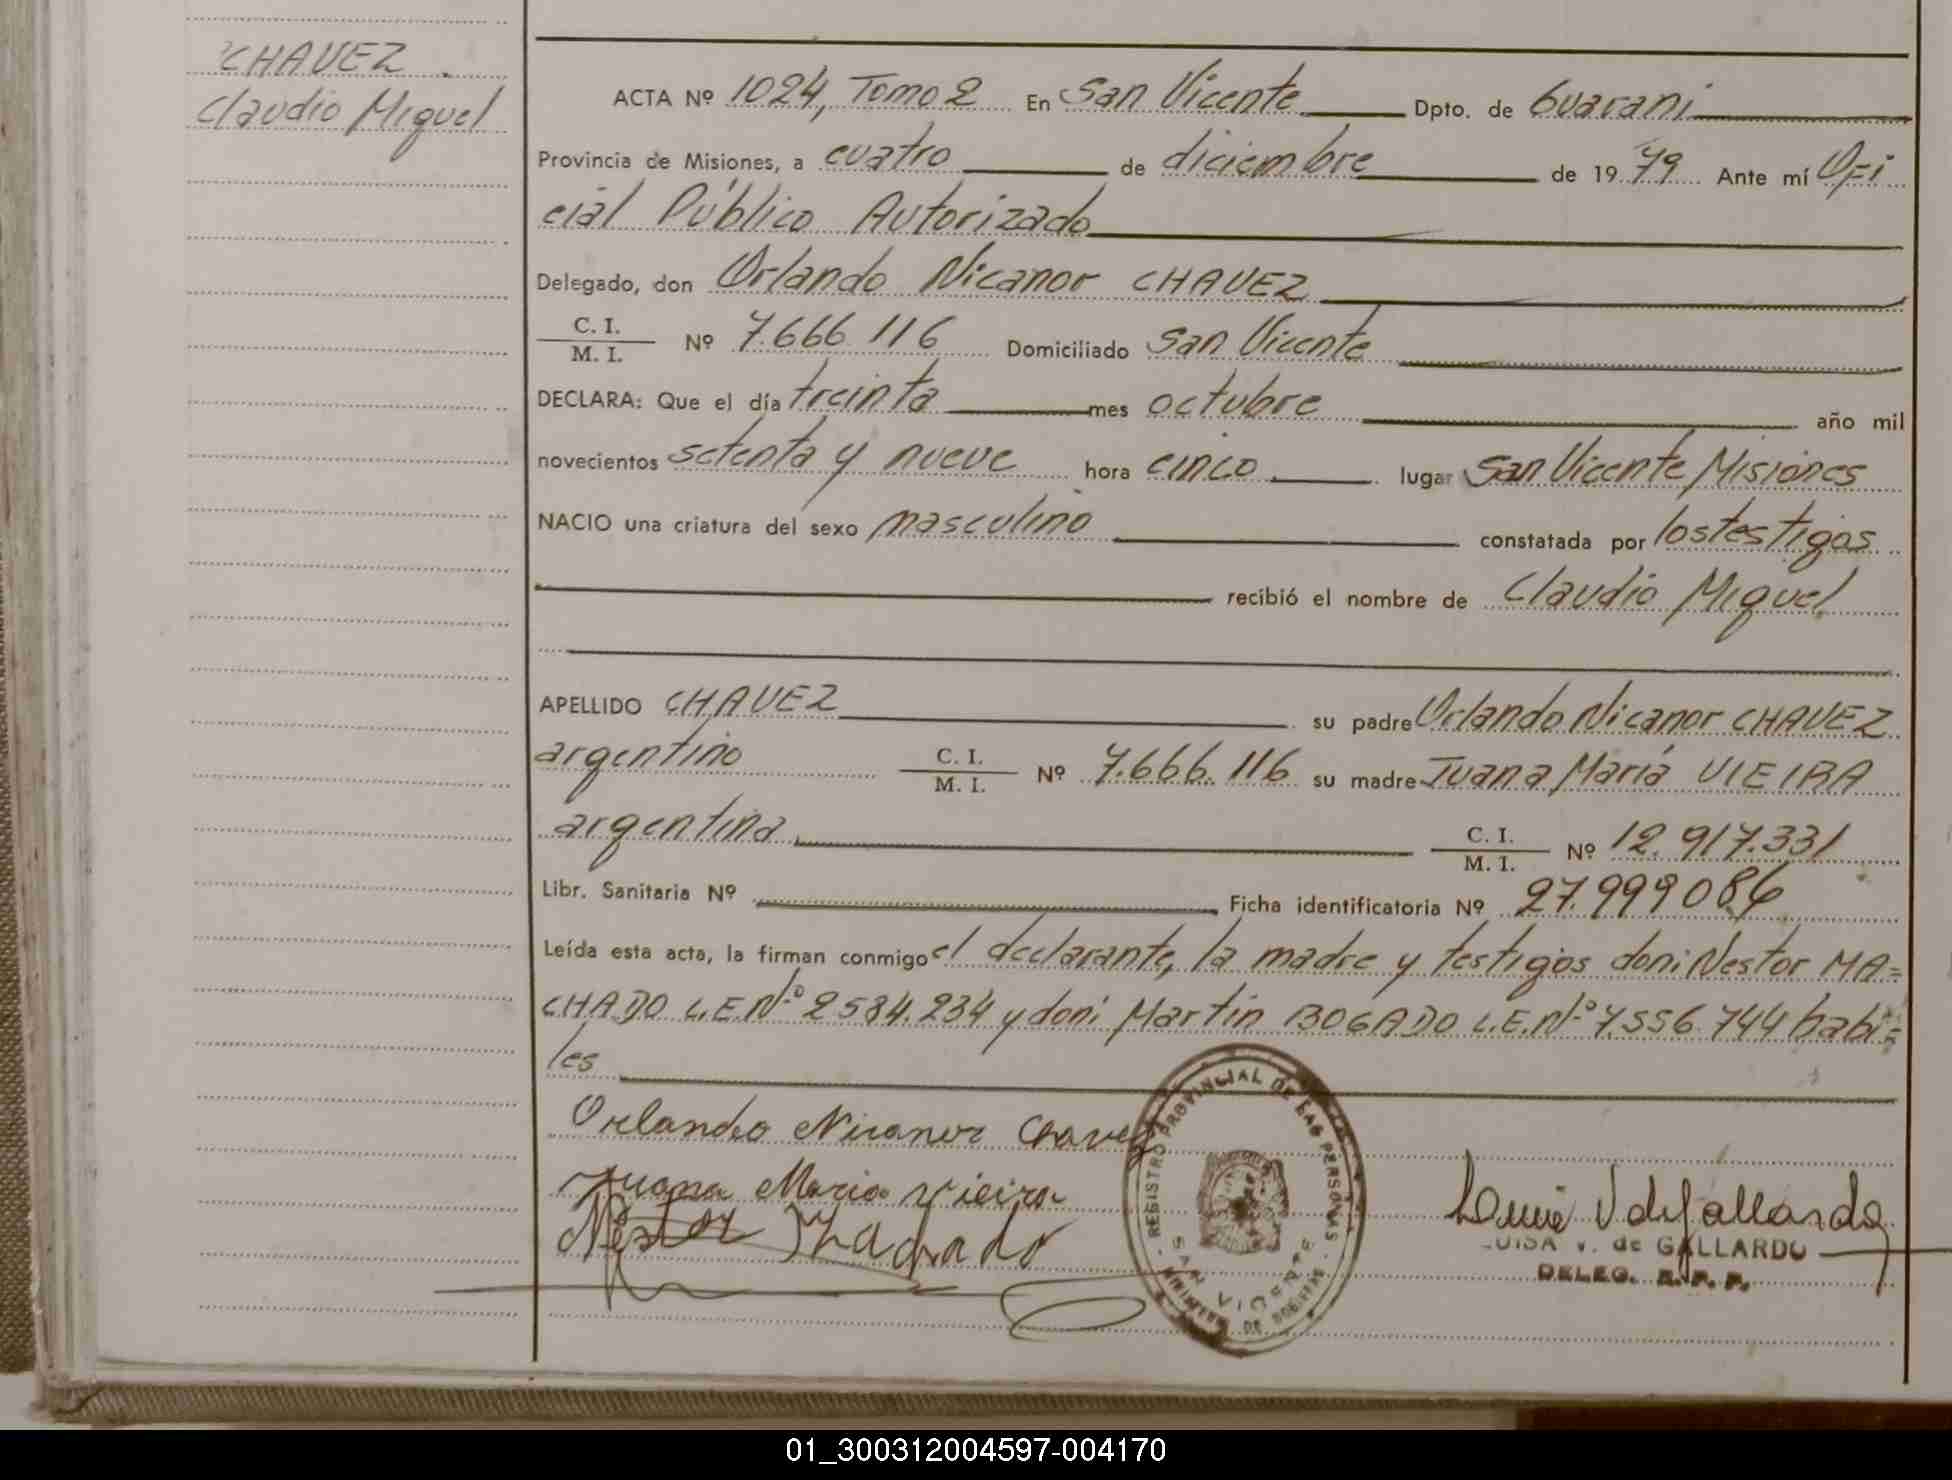 CHAVEZ
Claudio Miguel
ACTA Nº 1024, Tomo 2 En San Vicente Dpto. de Guarani
Provincia de Misiones, a cuatro de diciembre de 1979 Ante mí Ofi
cial Público Autorizado
Delegado, don Orlando Nicanor CHAVEZ
C. I.
M. I. Nº 7.666.116 Domiciliado San Vicente
DECLARA: Que el día treinta mes octubre año mil
novecientos setenta y nueve hora cinco lugar San Vicente Misiones
NACIO una criatura del sexo masculino constatada por los testigos
recibió el nombre de Claudio Miguel
APELLIDO CHAVEZ su padre Orlando Nicanor CHAVEZ
argentino C. I.
M. I. Nº 7.666.116 su madre Juana María VIEIRA
argentina C. I.
M. I. Nº 12.917.331
Libr. Sanitaria Nº Ficha identificatoria Nº 27.999086
Leída esta acta, la firman conmigo el declarante, la madre y testigos don: Nestor MA=
CHADO L.E.Nº 2584.234 y don: Martin BOGADO L.E.Nº 7.556.744 habi=
les
Orlando Nicanor Chavez
Juana Maria Vieira
Nestor Machado
REGISTRO PROVINCIAL DE LAS PERSONAS
SAN VICENTE
LUISA V. de GALLARDO
DELEG. R. P. P.
01_300312004597-004170